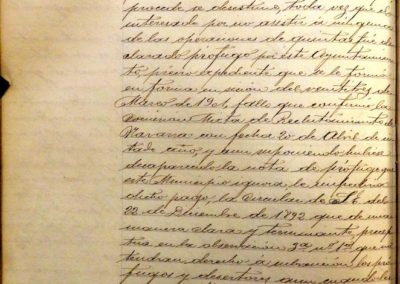 procede se desestime, toda vez que el
interesado por no asistir á ninguna
de las operaciones de quintas fué de
clarado prófugo por este Ayuntamien
to, previo expediente que se le formó
en forma en sesión del veintitrés de
Marzo de 1901, fallo que confirmó la
Comisión Mixta de Reclutamiento de
Navarra con fecha 20 de Abril de
año, y aun suponiendo hubiera
desaparecido la nota de prófugo que
este Municipio ignora le
dicho pago, la Circular de
22 de Diciembre de 1892 que de una
manera clara y terminante, precep
túa en la observación 3ª nº 1º que no
tendrán derecho á los pró
fugos y desertores aun cuando